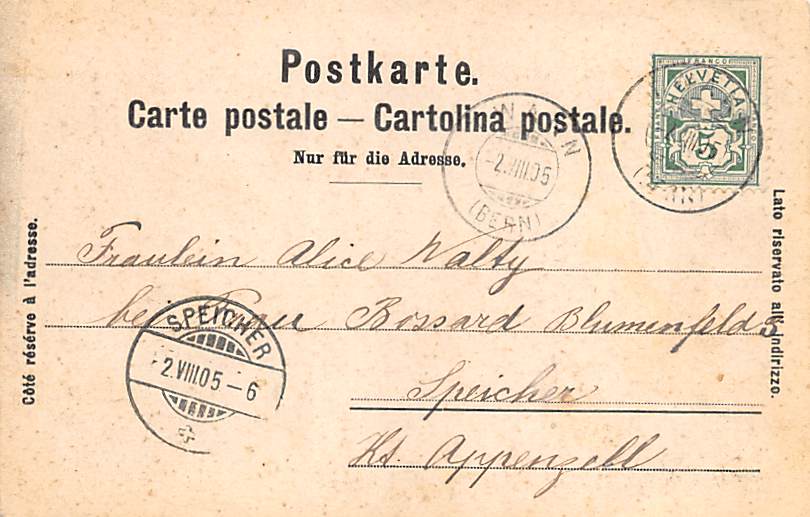 Postkarte.
Carte postale — Cartolina postale.
Nur für die Adresse.
FRANCO
HELVETIA
5
WASEN
-2.VIII.05
(BERN)
VIII.05
(BERN)
Côté réservé à l'adresse.
Lato riservato all'indirizzo.
Fraulein Alice Walty
bei Frau Bossard Blumenfeld
Speicher
Kt. Appenzell
SPEICHER
2.VIII.05-6